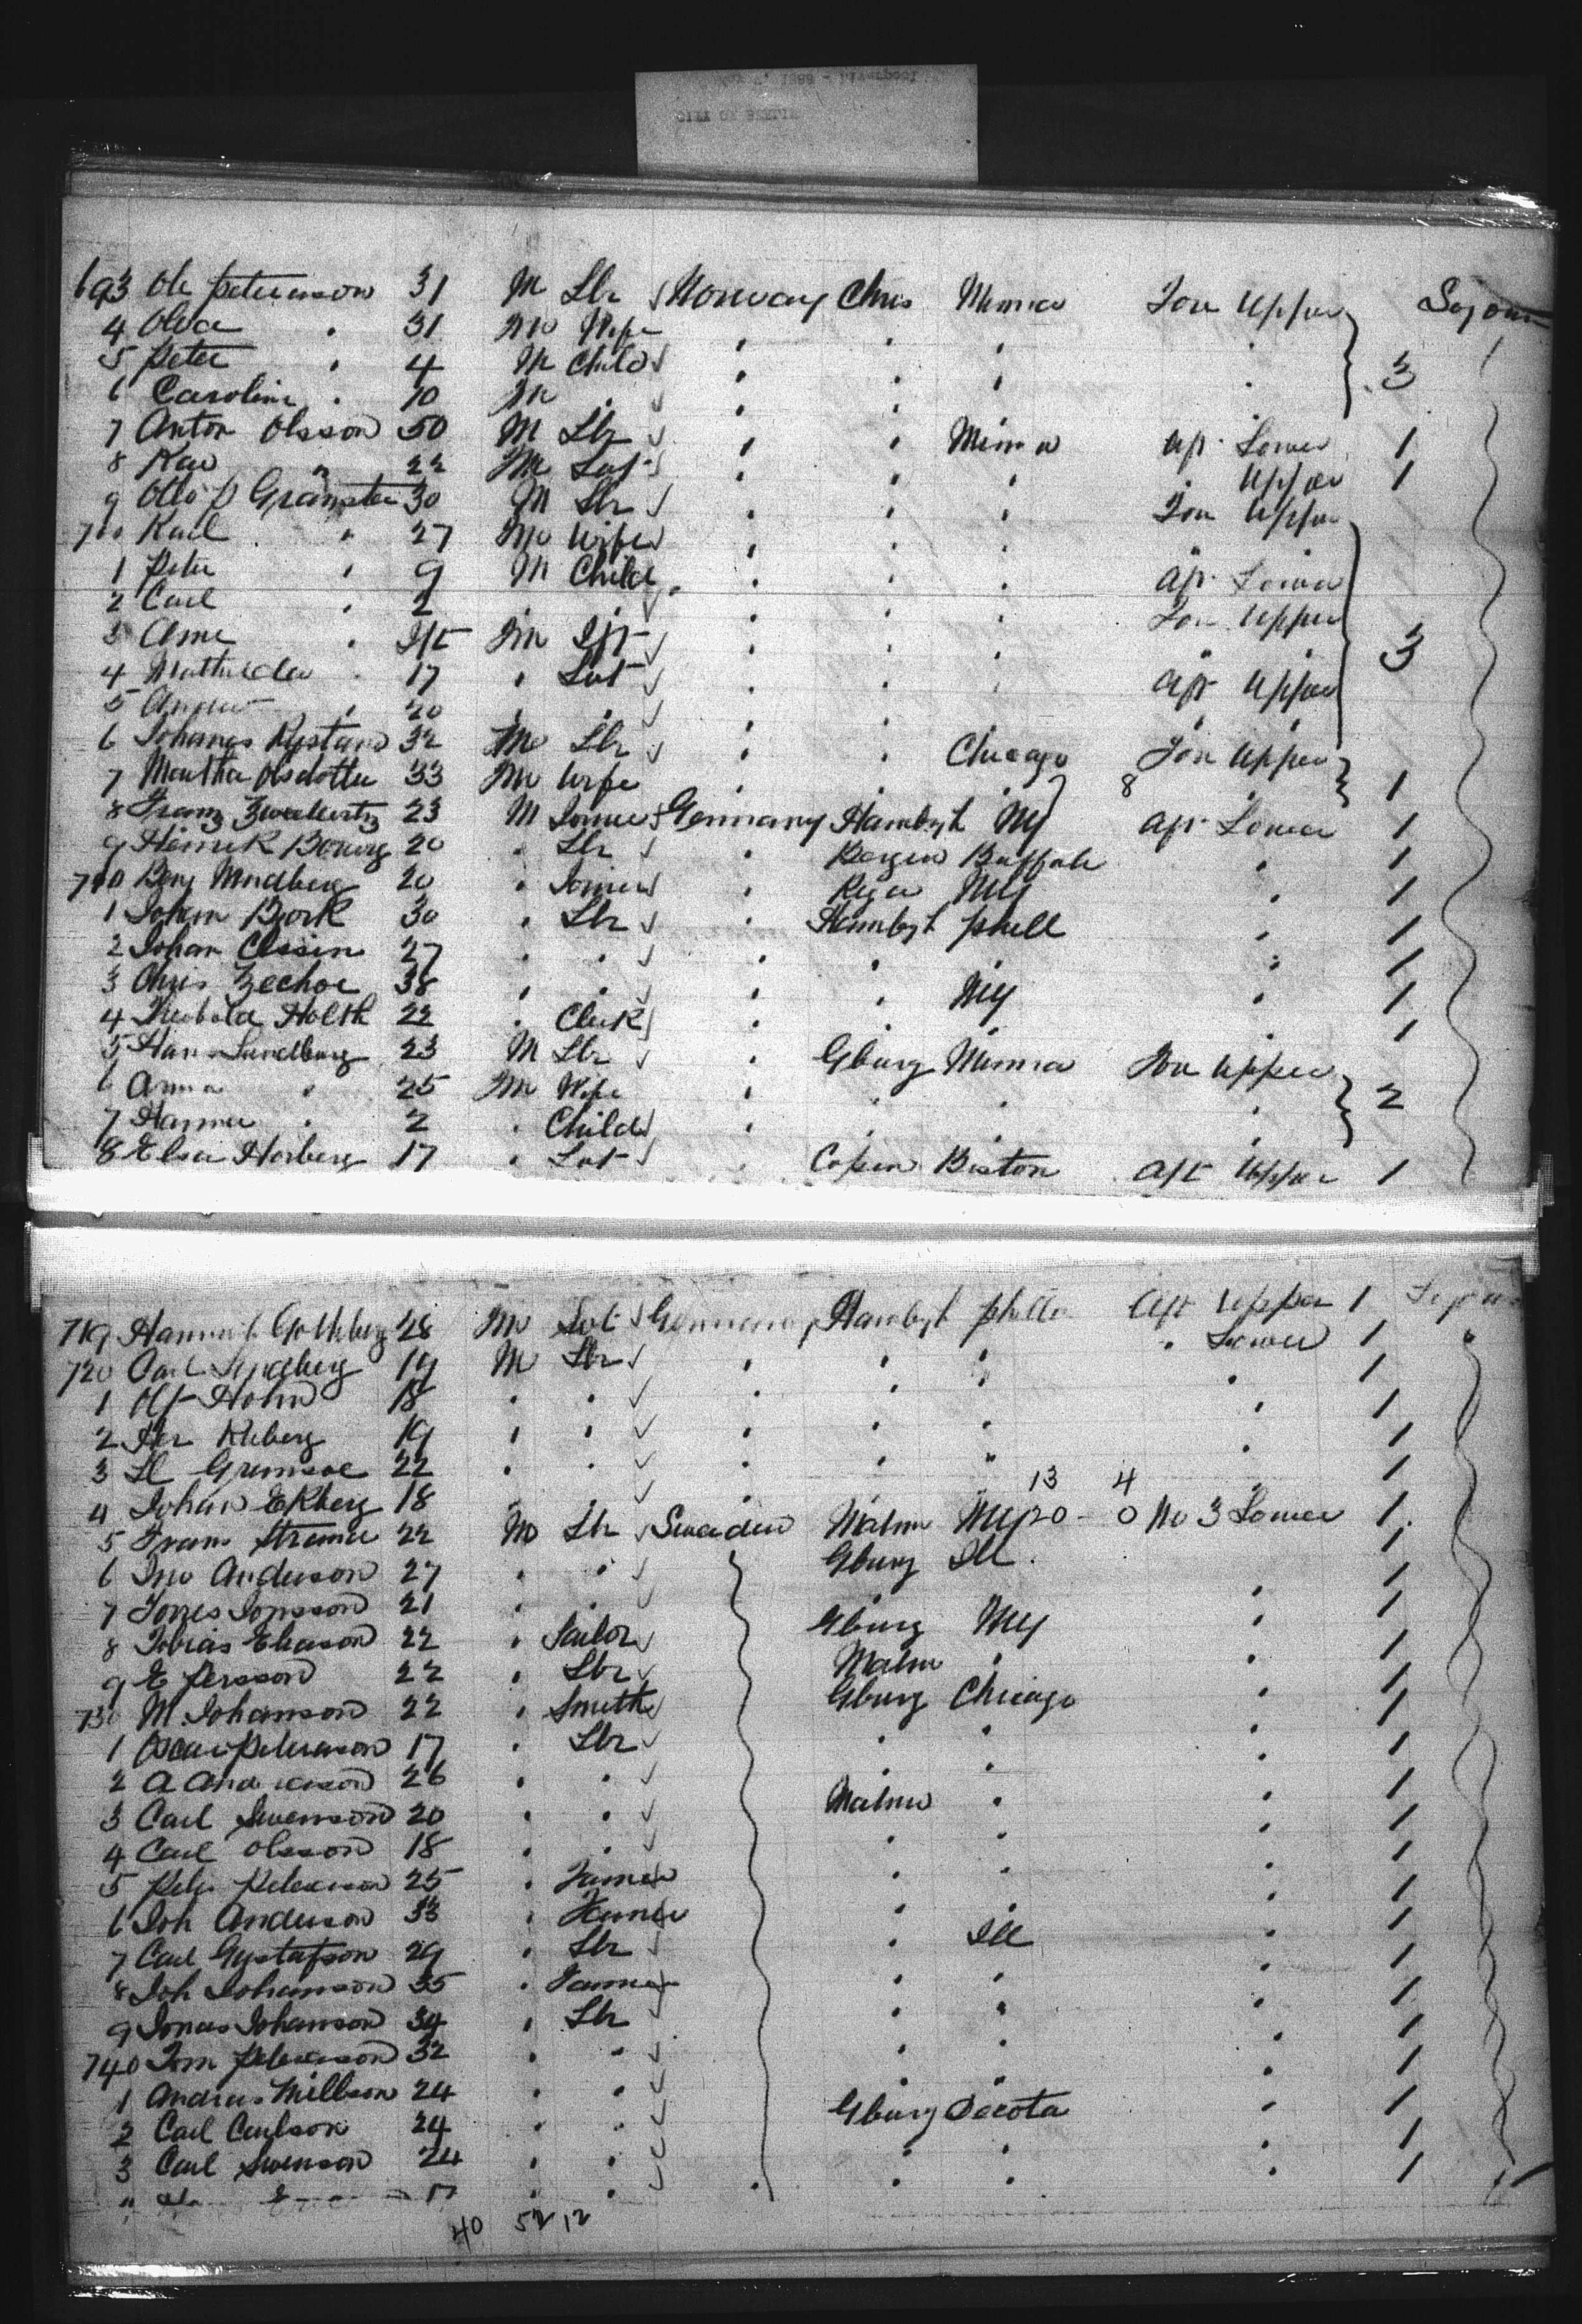 1888 - Liverpool
CITY OF BERLIN
693 Ole Peterson 31 M Lbr Norway Chris Minna For Upper Sojour
4 Olea . 31 M Wife . . .
5 Peter . 4 M Child . . . 3
6 Caroline . 10 M . . . .
7 Anton Olsson 50 M Lbr . . Minna Aft Lower 1
8 " 22 M . . . . Upper 1
9 Otto P 30 M Lbr . . . For Upper
700 Karl . 27 M Wife . . .
1 Peter . 9 M Child . . . Aft Lower
2 Carl . 2 . . . . For Upper
3 . Ift M Ift . . . . 3
4 Mathilda . 17 . . . . Aft Upper
5 . 20 . . . . . .
6 Johanes 32 M Lbr . . Chicago For Upper
7 Martha Olsdotter 33 M Wife . . . 8 . 1
8 Franz 23 M Joiner Germany Hambgh NY Aft Lower 1
9 20 . Lbr . Bergen Buffalo . 1
710 Benj Mindberg 20 . Joiner . Riga NY . 1
1 Johan Bjork 30 . Lbr . Hambgh Phill . 1
2 Johan 27 . . . . . . 1
3 Chris Zechoe 38 . . . . NY . 1
4 Holth 22 . Clerk . . . . 1
5 Hans Sundberg 23 M Lbr . Gburg Minna For Upper
6 Anna . 25 M Wife . . . . 2
7 Hanna . 2 . Child . . . .
8 Elsa Horberg 17 . . Copen Boston Aft Upper 1
719 28 M Germany Hambgh Phila Aft Upper 1 Sojour
720 Carl 19 M Lbr . . . . Lower 1 "
1 Holm 18 . . . . . . 1
2 Per 19 . . . . . . 1
3 22 . . . . " . 1
4 Johan Ekberg 18 . . . 13 4 1
5 Frans 22 M Lbr Sweden Malmo NY 20 - 0 No 3 Lower 1
6 Jno Anderson 27 . . Gburg Ill . 1
7 Jonsson 21 . . . 1
8 Tobias Eliason 22 . Sailor Gburg NY . 1
9 E Persson 22 . Lbr Malmo . . 1
730 M. Johanson 22 . Smith Gburg Chicago . 1
1 Oscar Peterson 17 . Lbr . . . 1
2 A Anderson 26 . . . . . 1
3 Carl Swenson 20 . . Malmo . . 1
4 Carl Olsson 18 . . . . . 1
5 Peter Peterson 25 . Farmer . . . 1
6 Joh Anderson 33 . Farmer . . . 1
7 Carl Gustafson 29 . Lbr . Ill . 1
8 Joh Johanson 35 . Farmer . . . 1
9 Jonas Johanson 34 . Lbr . . . 1
740 Peterson 32 . . . . . 1
1 Andrus Millson 24 . . . . . 1
2 Carl Carlson 24 . . Gburg Dacota . 1
3 Carl Swenson 24 . . . . . 1
40 52 12